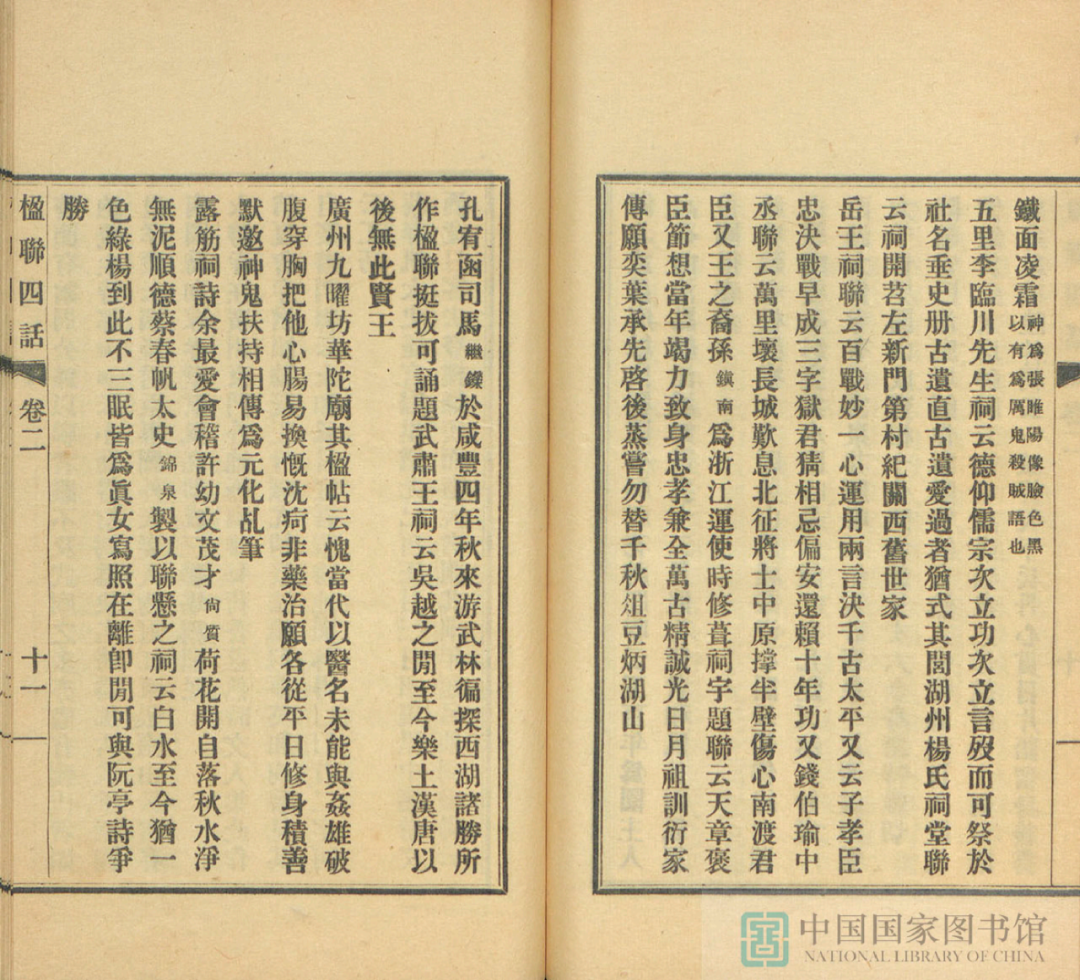 鐵面凌霜神爲張睢陽像臉色黑以有爲厲鬼殺賊語也
五里李臨川先生祠云德仰儒宗次立功次立言歿而可祭於
社名垂史册古遺直古遺愛過者猶式其閭湖州楊氏祠堂聯
云祠開苕左新門第村紀關西舊世家
岳王祠聯云百戰妙一心運用兩言決千古太平又云子孝臣
忠決戰早成三字獄君猜相忌偏安還賴十年功又錢伯瑜中
丞聯云萬里壞長城歎息北征將士中原撑半壁傷心南渡君
臣又王之裔孫鎮南爲浙江運使時修葺祠宇題聯云天章褒
臣節想當年竭力致身忠孝兼全萬古精誠光日月祖訓衍家
傳願奕葉承先啓後蒸嘗勿替千秋俎豆炳湖山
孔宥函司馬繼鑅於咸豐四年秋來游武林徧探西湖諸勝所
作楹聯挺拔可誦題武肅王祠云吳越之閒至今樂土漢唐以
後無此賢王
廣州九曜坊華陀廟其楹帖云愧當代以醫名未能與姦雄破
腹穿胸把他心腸易換慨沈疴非藥治願各從平日修身積善
默邀神鬼扶持相傳爲元化乩筆
露筋祠詩余最愛會稽許幼文茂才尙質荷花開自落秋水淨
無泥順德蔡春帆太史錦泉製以聯懸之祠云白水至今猶一
色綠楊到此不三眠皆爲眞女寫照在離卽閒可與阮亭詩爭
勝
楹聯四話 卷二 十一
中国国家图书馆
NATIONAL LIBRARY OF CHINA